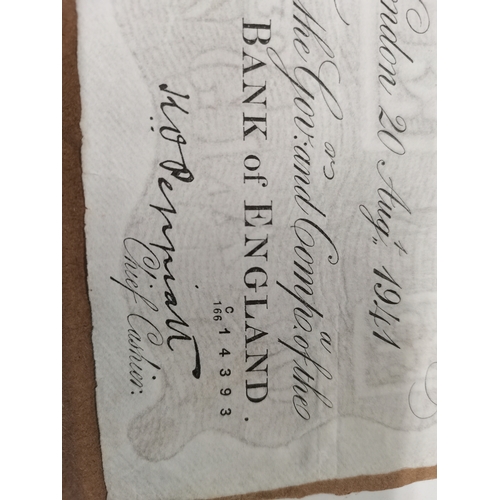 London 20 Augᵗ, 1941
the Govʳ: and Compᵃ. of the
BANK of ENGLAND.
C
166 14393
K O Peppiatt
Chief Cashier.